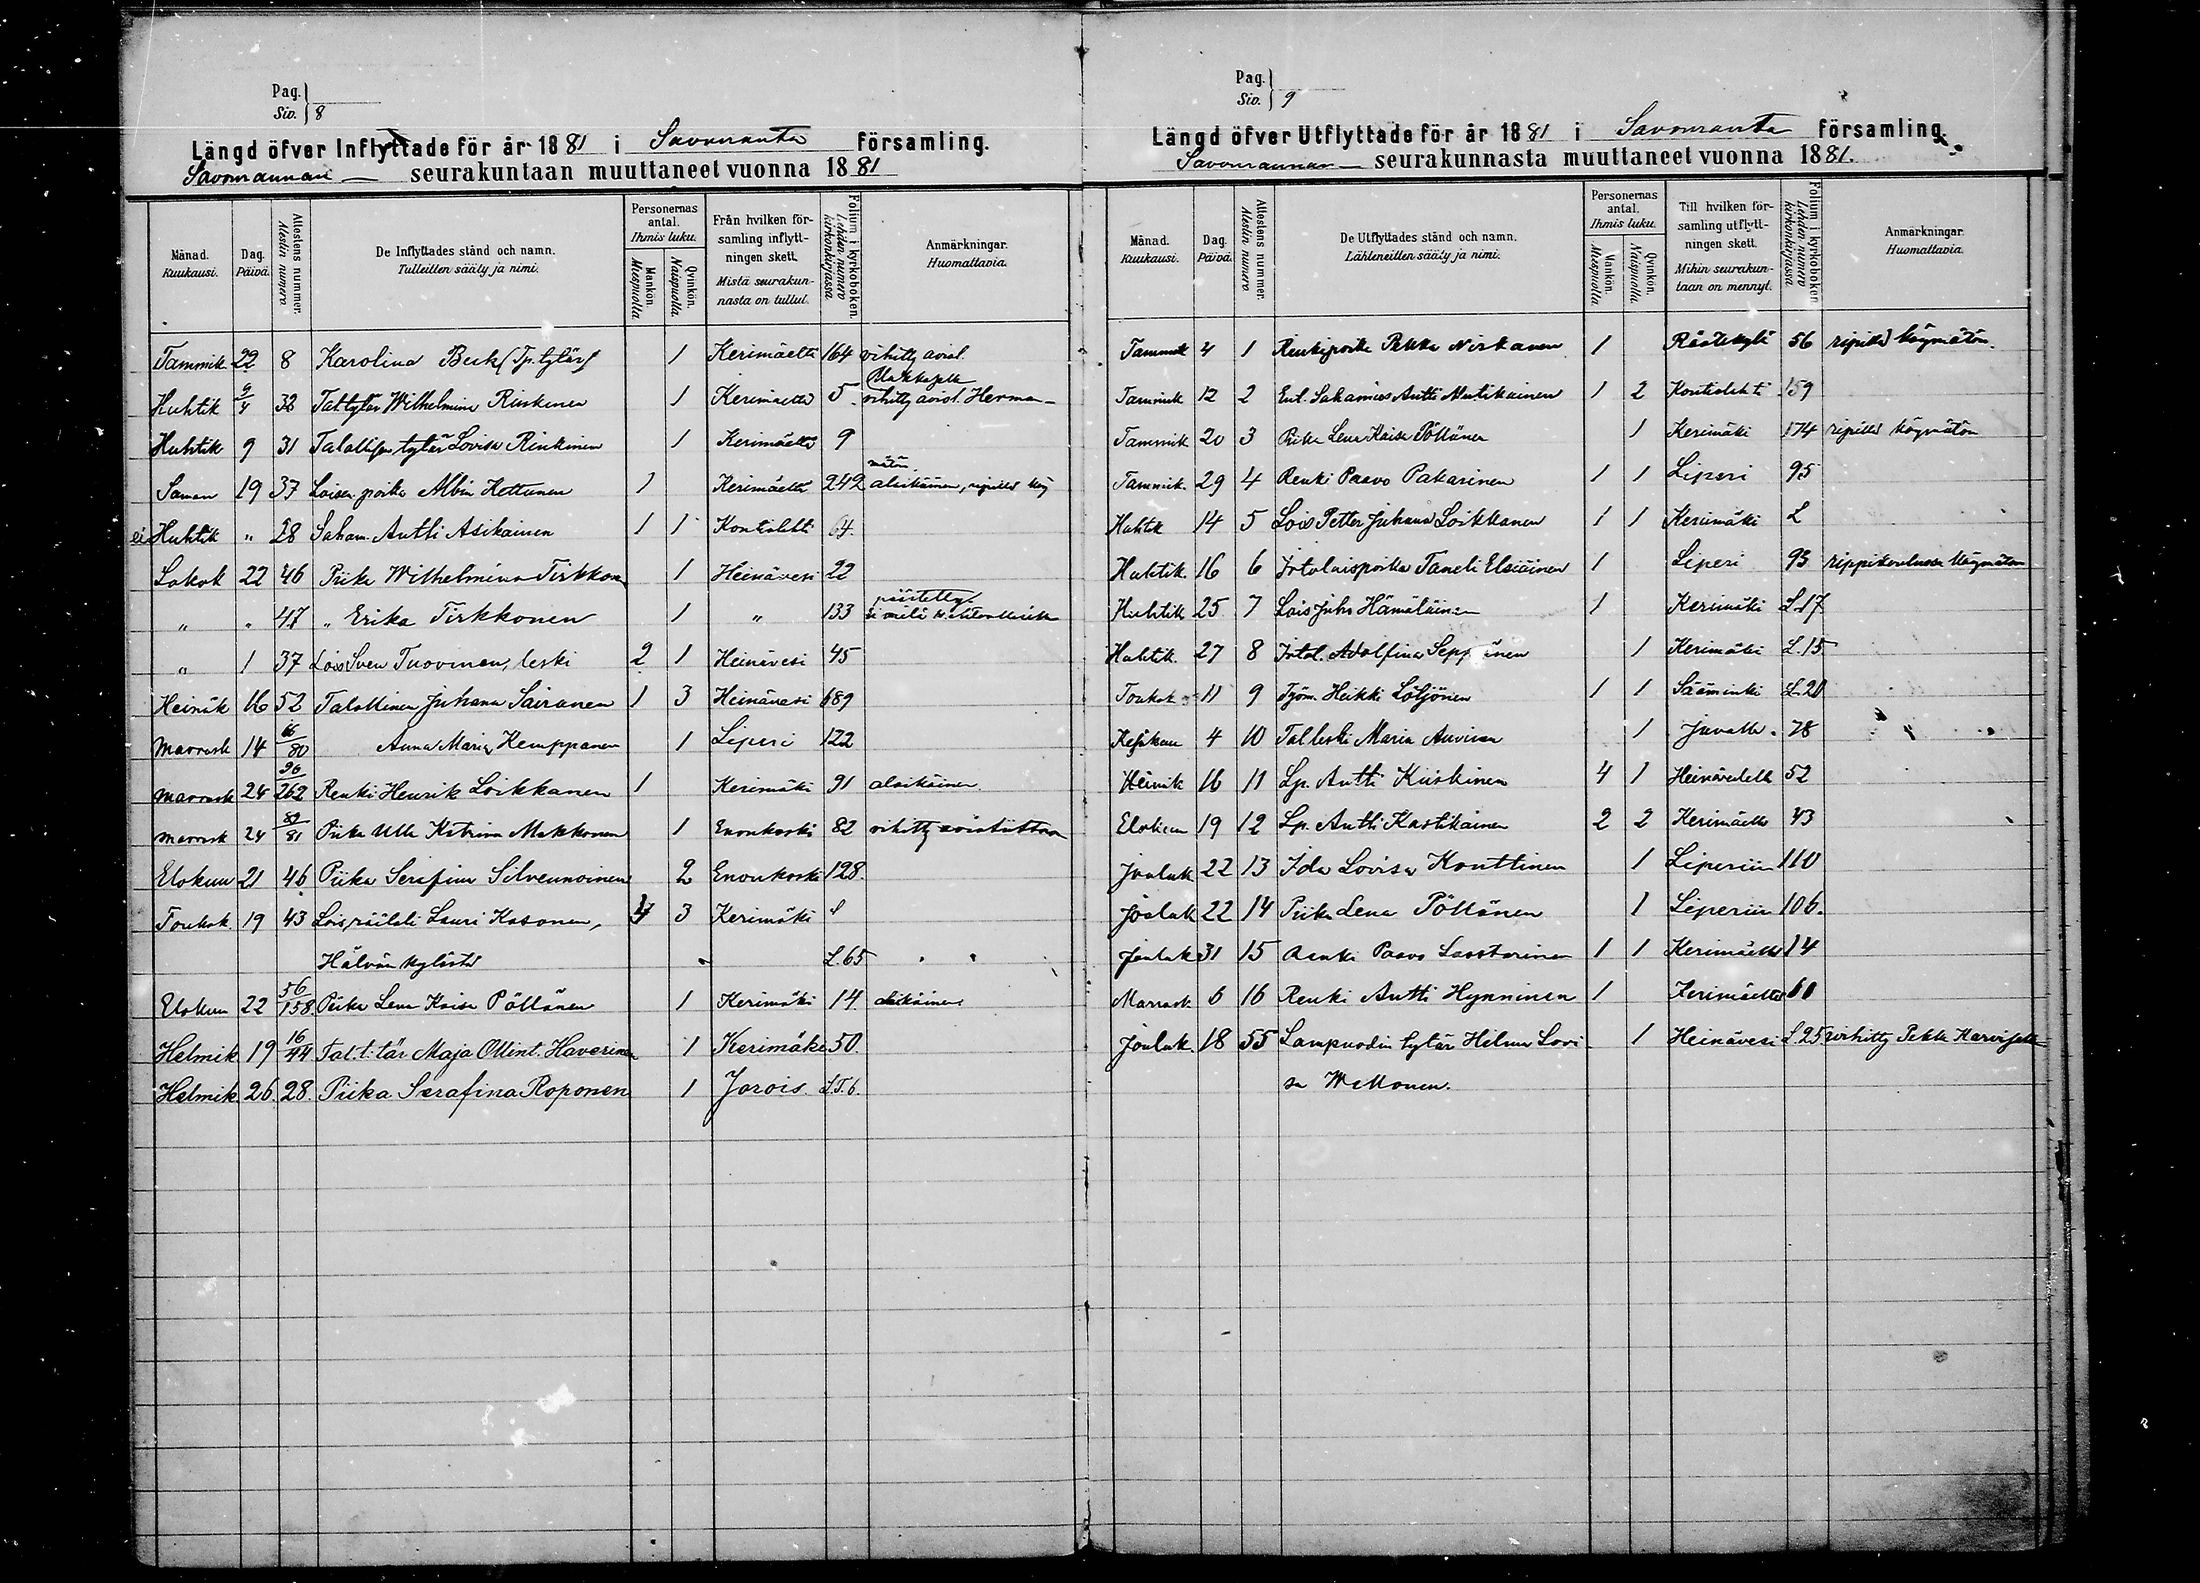 Pag.
Siv. 8
Längd öfver Inflyttade för år 1881 i Savonranta församling.
Savonrannan seurakuntaan muuttaneet vuonna 1881
Månad. Kuukausi. Dag. Päivä. Attestens nummer. Atestin numero. De Inflyttades stånd och namn. Tulleitten sääty ja nimi. Personernas antal. Ihmis luku. Mankön. Miespuolia. Qvinkön. Naispuolia. Från hvilken församling inflyttningen skett. Mistä seurakunnasta on tullut. Folium i kyrkoboken. Lehden numero kirkonkirjassa. Anmärkningar. Huomattavia.
Tammik 22 8 Karolina Beck (Tp. tytär) 1 Kerimäeltä 164 vihitty aviol.
Huhtik 9/4 32 Tal. tytär Wilhelmina Rinkinen 1 Kerimäeltä 5 vihitty aviol. Herman
Huhtik 9 31 Talollisen tytär Lovisa Rinkinen 1 Kerimäeltä 9
Saman 19 37 Loisen poika Albin Kettunen 1 Kerimäeltä 242 alaikäinen, ripillä käymätön
ei Huhtik " 28 Saham. Antti Asikainen 1 1 Kontiolahti 64.
Lokok 22 46 Piika Wilhelmina Tirkkon 1 Heinävesi 22
" " 47 " Erika Tirkkonen 1 " 133
" 1 37 Lois Sven Tuovinen, leski 2 1 Heinävesi 45
Heinäk 16 52 Talollinen Juhana Sairanen 1 3 Heinävesi 689
Marrask 14 66/80 Anna Maria Kemppanen 1 Liperi 122
Marrask 24 96/262 Renki Henrik Loikkanen 1 Kerimäki 91 alaikäinen
Marrask 24 89/81 Piika Ulla Katrina Makkonen 1 Enonkoski 82 vihitty
Elokuu 21 46 Piika Serafina Silvennoinen 2 Enonkoski 128.
Toukok 19 43 Lois, räätäli Lauri Kosonen, 4 3 Kerimäki
Hälvän kylästä L.65
Elokuu 22 56/158 Piika Lena Kaisa Pöllänen 1 Kerimäki 14. alaikäinen
Helmik 19 16/44 Tal. t: tär Maja Ollint. Haverinen 1 Kerimäke 50.
Helmik 26. 28. Piika Serafina Roponen 1 Jorois. L.T.6.
Pag.
Siv. 9
Längd öfver Utflyttade för år 1881 i Savonranta församling.
Savonrannan seurakunnasta muuttaneet vuonna 1881.
Månad. Kuukausi. Dag. Päivä. Attestens nummer. Atestin numero. De Utflyttades stånd och namn. Lähteneitten sääty ja nimi. Personernas antal. Ihmis luku. Mankön. Miespuolia. Qvinkön. Naispuolia. Till hvilken församling utflyttningen skett. Mihin seurakuntaan on mennyt. Folium i kyrkoboken. Lehden numero kirkonkirjassa. Anmärkningar. Huomattavia.
Tammik 4 1 Renkipoika Pekka Niskanen 1 Rääkkylä 56 ripillä käymätön.
Tammik 12 2 Ent. Sahamies Antti Mutikainen 1 2 Kontiolahti 159
Tammik 20 3 Piika Lena Kaisa Pöllänen 1 Kerimäki 174 ripillä käymätön
Tammik. 29 4 Renki Paavo Pakarinen 1 1 Liperi 95
Huhtik 14 5 Lois Petter Juhana Loikkanen 1 1 Kerimäki L
Huhtik. 16 6 Irtolaispoika Taneli Elsiäinen 1 Liperi 93 rippikoulussa käymätön
Huhtik 25 7 Lois Juho Hämäläinen 1 Kerimäki L.17
Huhtik. 27 8 Irtol. Adolfina Seppänen 1 Kerimäki L.15
Toukok 11 9 Työm. Heikki Löljönen 1 1 Sääminki L.20
Kesäkuu 4 10 Tal leski Maria Auvinen 1 Juvalle. 78
Heinik 16 11 Lp. Antti Kiiskinen 4 1 Heinävedelle 52
Elokuu 19 12 Lp. Antti Kastikainen 2 2 Kerimäelle 43
Jouluk 22 13 Ida Lovisa Konttinen 1 Liperiin 110
Jouluk 22 14 Piika Lena Pöllänen 1 Liperiin 106.
Jouluk 31 15 Renki Paavo Saastarinen 1 1 Kerimäelle 14
Marrask 6 16 Renki Antti Hynninen 1 Kerimäelle 61
Jouluk. 18 55 Lampuodin tytär Hilma Lovi- 1 Heinävesi L.25 vihitty Pekka
sa Makkonen.